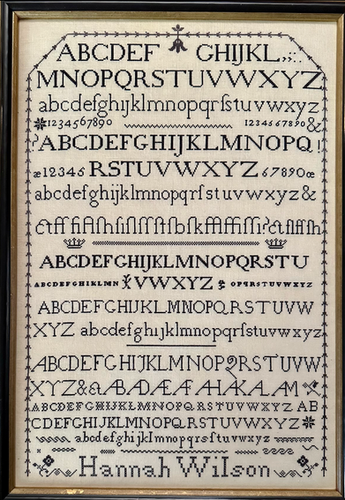 ABCDEF GHIJKL,;:.
MNOPQRSTUVWXYZ
abcdefghijklmnopqrſstuvwxyz
1234567890 1234567890&
?ABCDEFGHIJKLMNOPQ!
æ12345 RSTUVWXYZ 67890œ
abcdefghijklmnopqrſstuvwxyz&
ABCDEFGHIJKLMNOPQRSTU
ABCDEFGHIKLMN VWXYZ OPQRSTUVWXYZ
ABCDEFGHIJKLMNOPQRSTUVW
XYZ abcdefghijklmnopqrſstuvwxyz
ABCDEFGHIJKLMNOPQRSTUVW
XYZ&
ABCDEFGHIJKLMNOPQRSTUVWXYZ AB
CDEFGHIJKLMNOPQRSTUVWXYZ
abcdefghijklmnopqrſstuvwxyz
Hannah Wilson